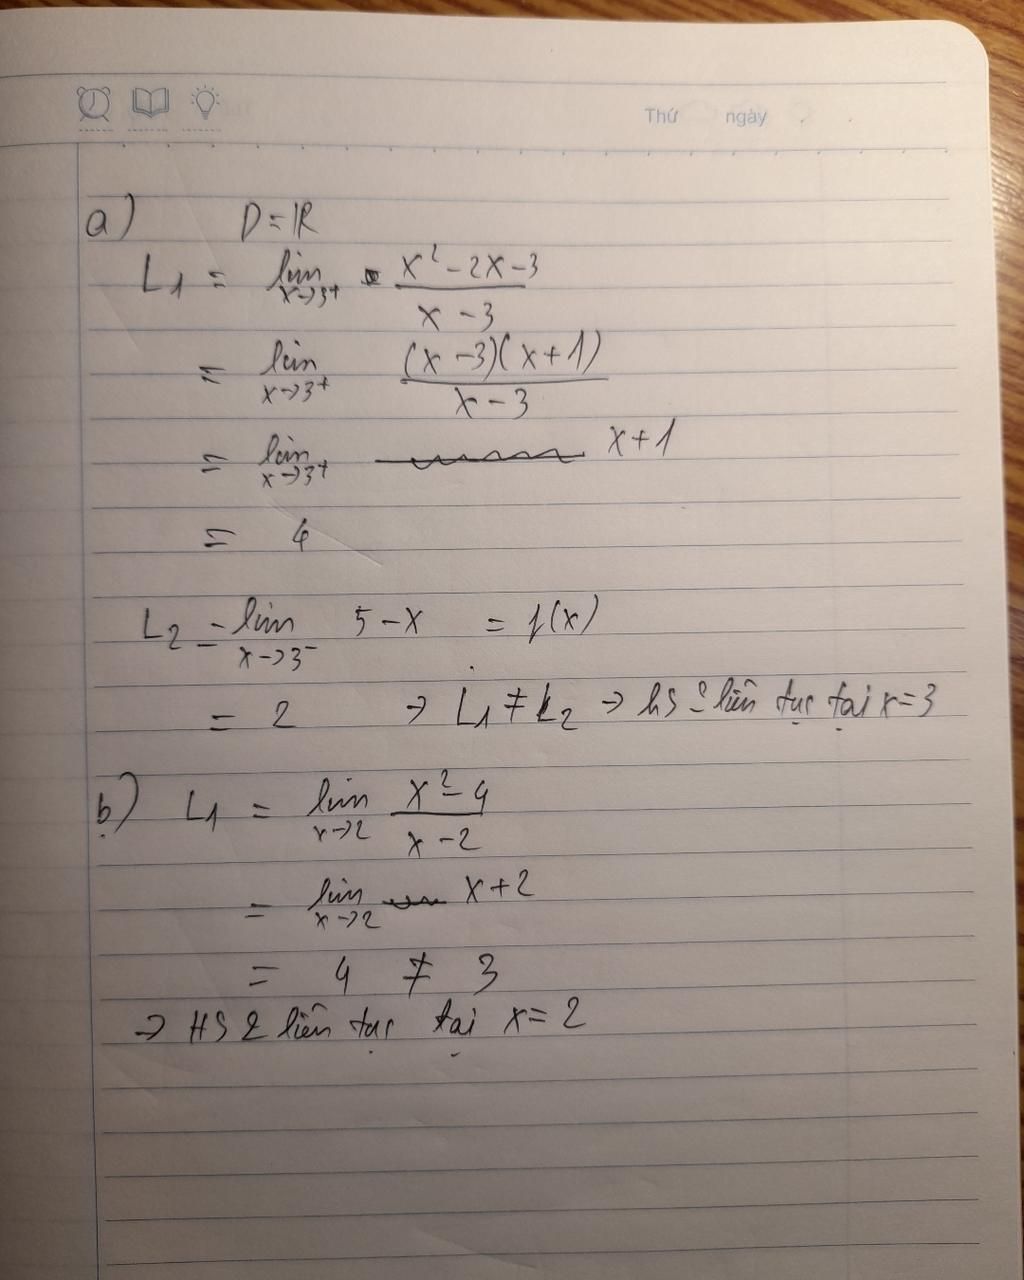 Thứ ngày
a) D = ℝ
L₁ = lim x→3⁺ (x² - 2x - 3)/(x - 3)
= lim x→3⁺ ((x - 3)(x + 1))/(x - 3)
= lim x→3⁺ x + 1
= 4
L₂ = lim x→3⁻ 5 - x = f(x)
= 2 → L₁ ≠ L₂ → hs liên tục tại x = 3
b) L₁ = lim x→2 (x² - 4)/(x - 2)
= lim x→2 x + 2
= 4 ≠ 3
→ HS liên tục tại x = 2